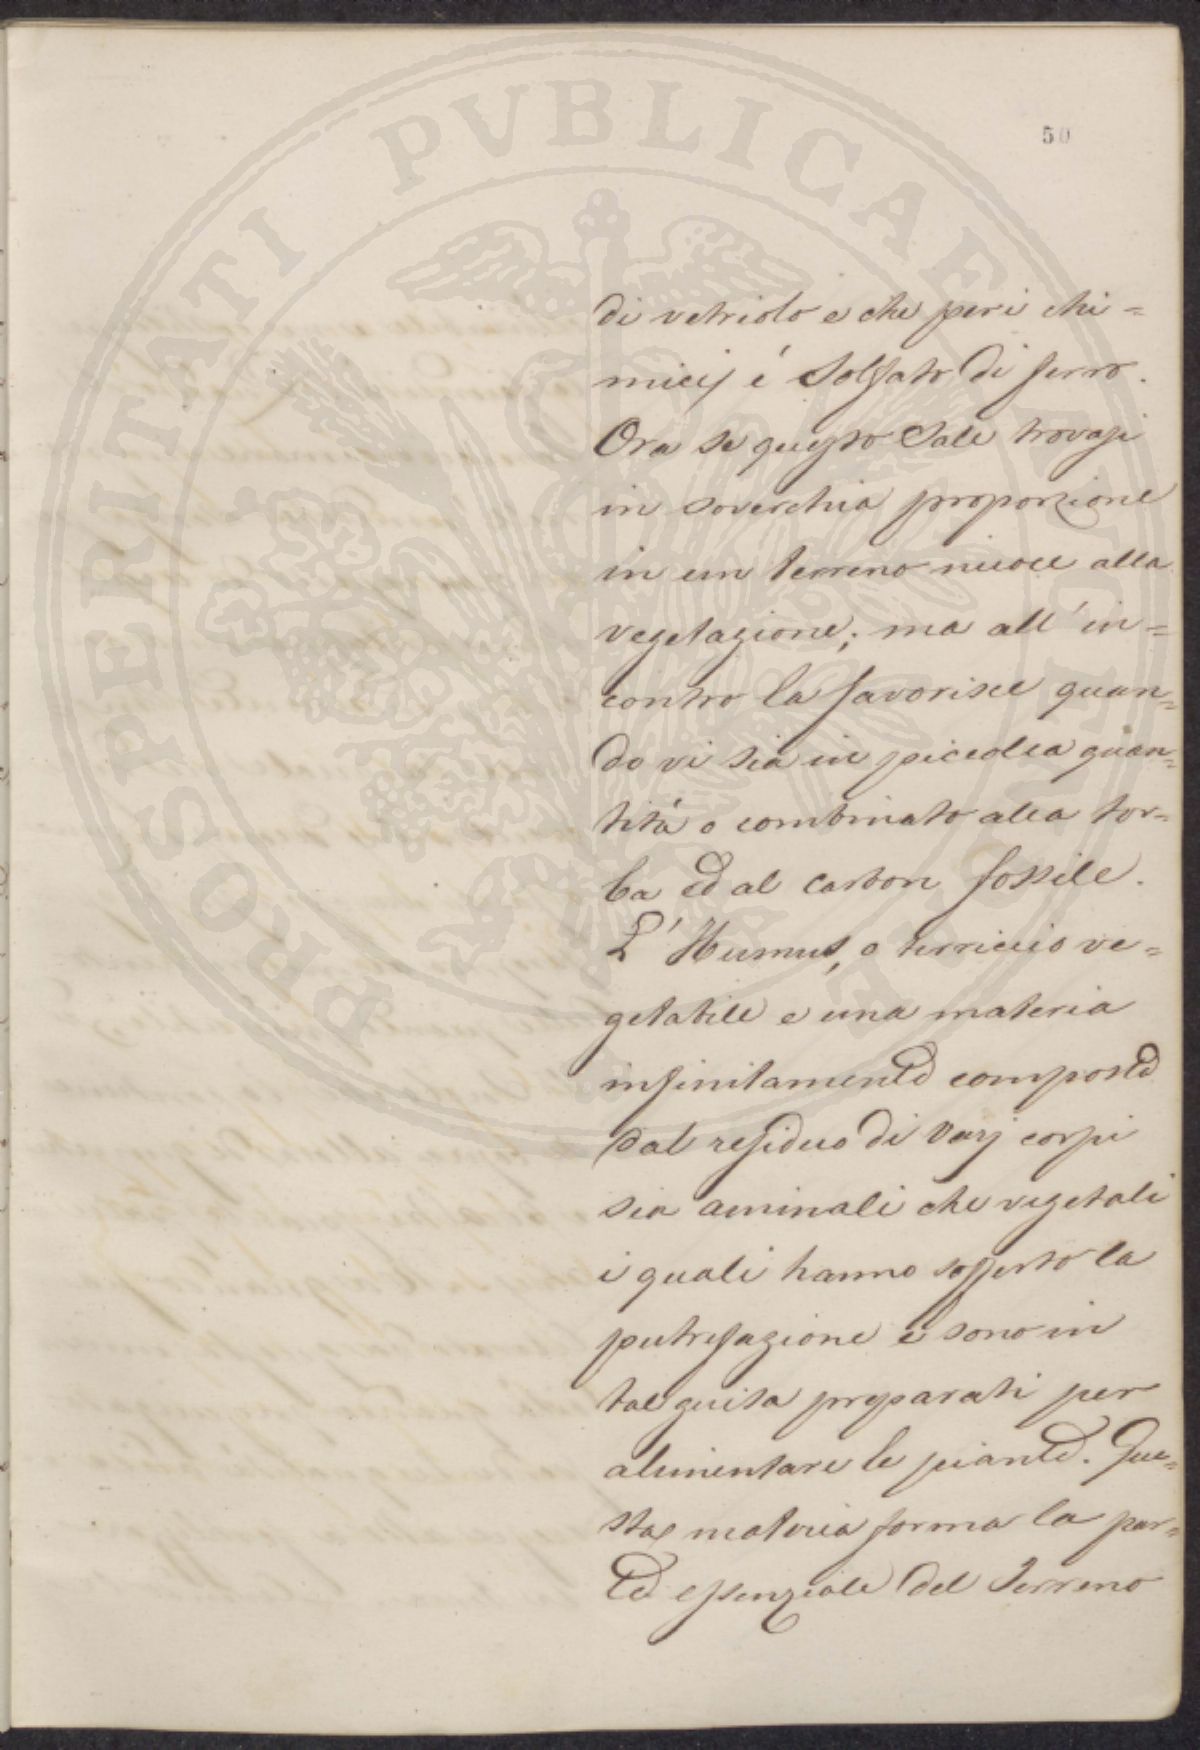 PROSPERITATI PVBLICAE AVGENDAE
50
di vetriolo e che peri chi=
micij é Solfato di ferro.
Ora se questo Sale trovasi
in soverchia proporzione
in un terreno nuoce alla
vegetazione; ma all' in=
contro la favorisce quan=
do vi sia in piccola quan=
titá o combinato alla tor=
ba ed al carbon fossile.
L' Humus, o terriccio ve=
getabile e una materia
infinitamente composta
dal residuo di varj corpi
sia aminali che vegetali
i quali hanno sofferto la
putrefazione e sono in
tal guisa preparati per
alimentare le piante. Que=
sta materia forma la par=
te essenziale del Terreno